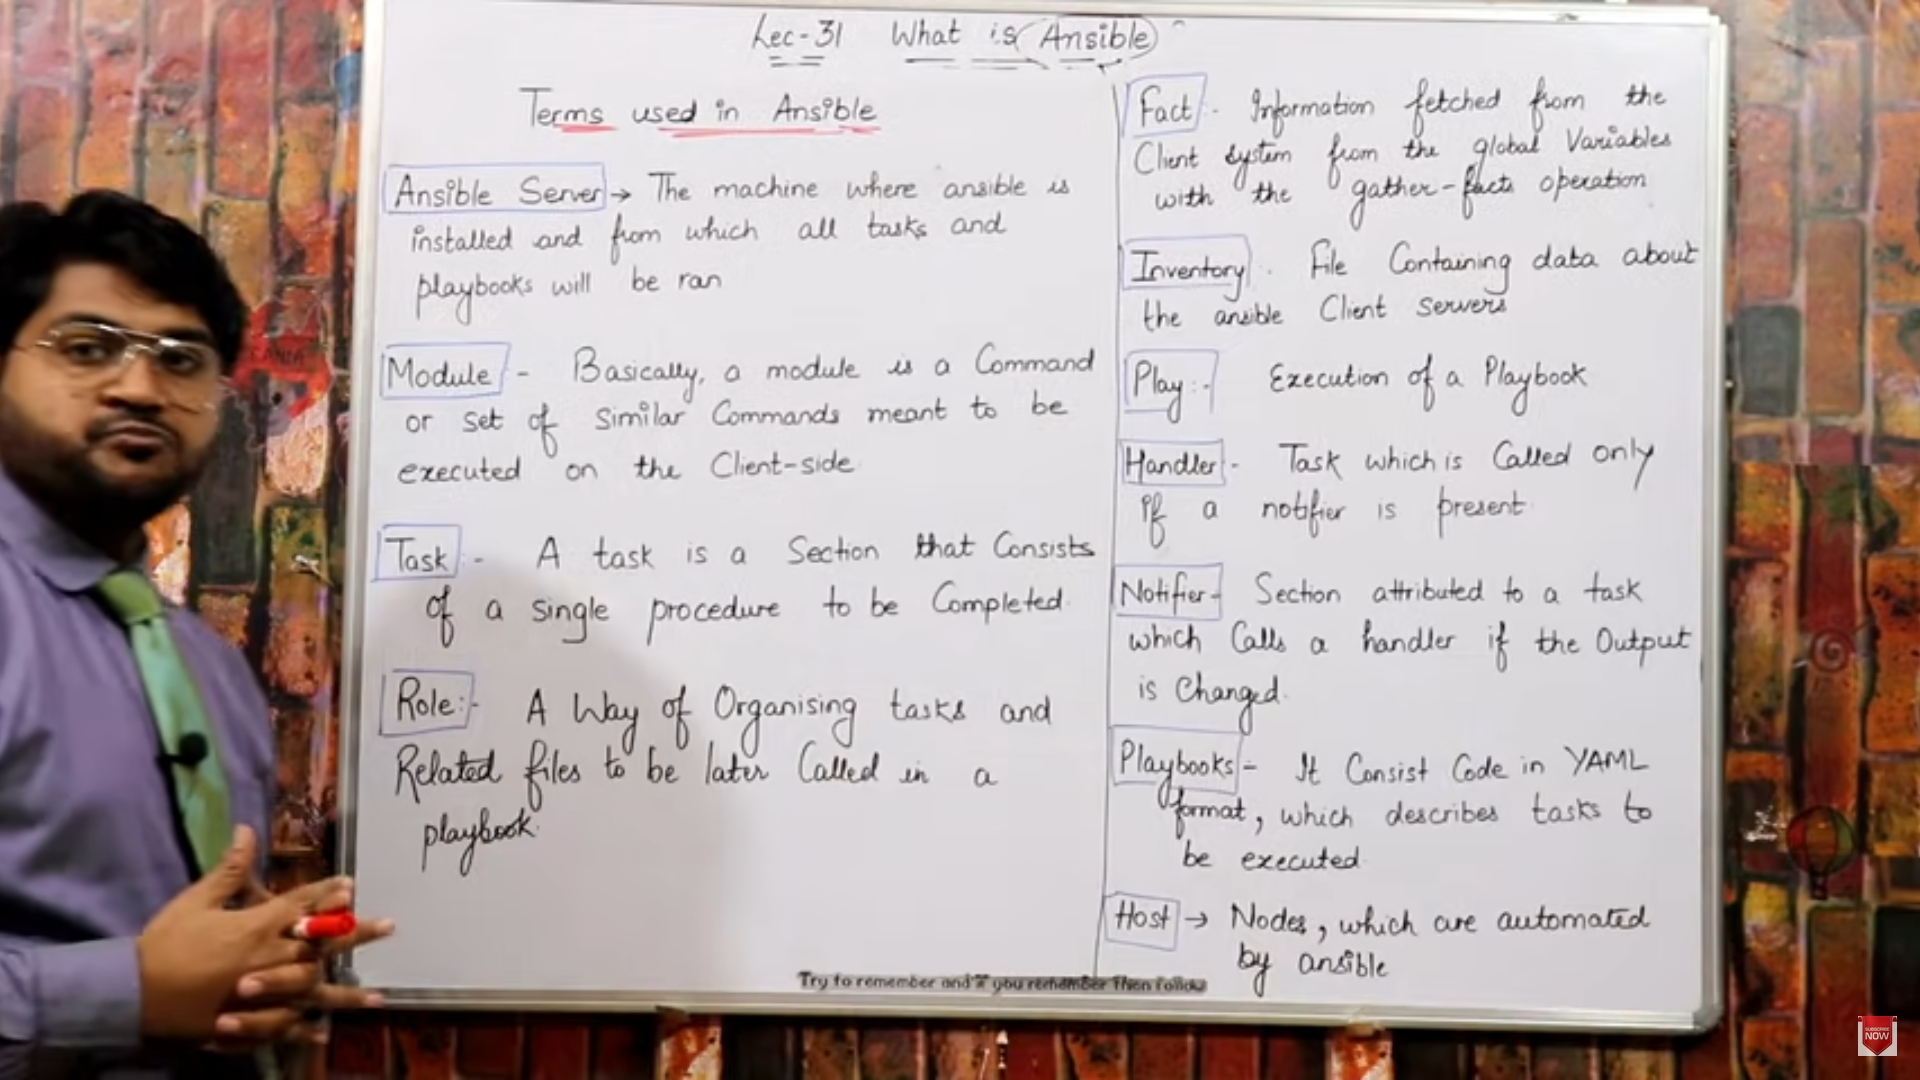 Lec-31 What is Ansible
Terms used in Ansible
Ansible Server → The machine where ansible is
installed and from which all tasks and
playbooks will be ran
Module - Basically, a module is a Command
or set of similar Commands meant to be
executed on the Client-side
Task :- A task is a Section that Consists
of a single procedure to be Completed.
Role:- A Way of Organising tasks and
Related files to be later Called in a
playbook.
Fact - Information fetched from the
Client system from the global Variables
with the gather-facts operation
Inventory - File Containing data about
the ansible Client servers
Play:- Execution of a Playbook
Handler - Task which is Called only
if a notifier is present
Notifier - Section attributed to a task
which Calls a handler if the Output
is Changed.
Playbooks - It Consist Code in YAML
format, which describes tasks to
be executed
Host → Nodes, which are automated
by ansible
Try to remember and if you remember Then follow
SUBSCRIBE
NOW